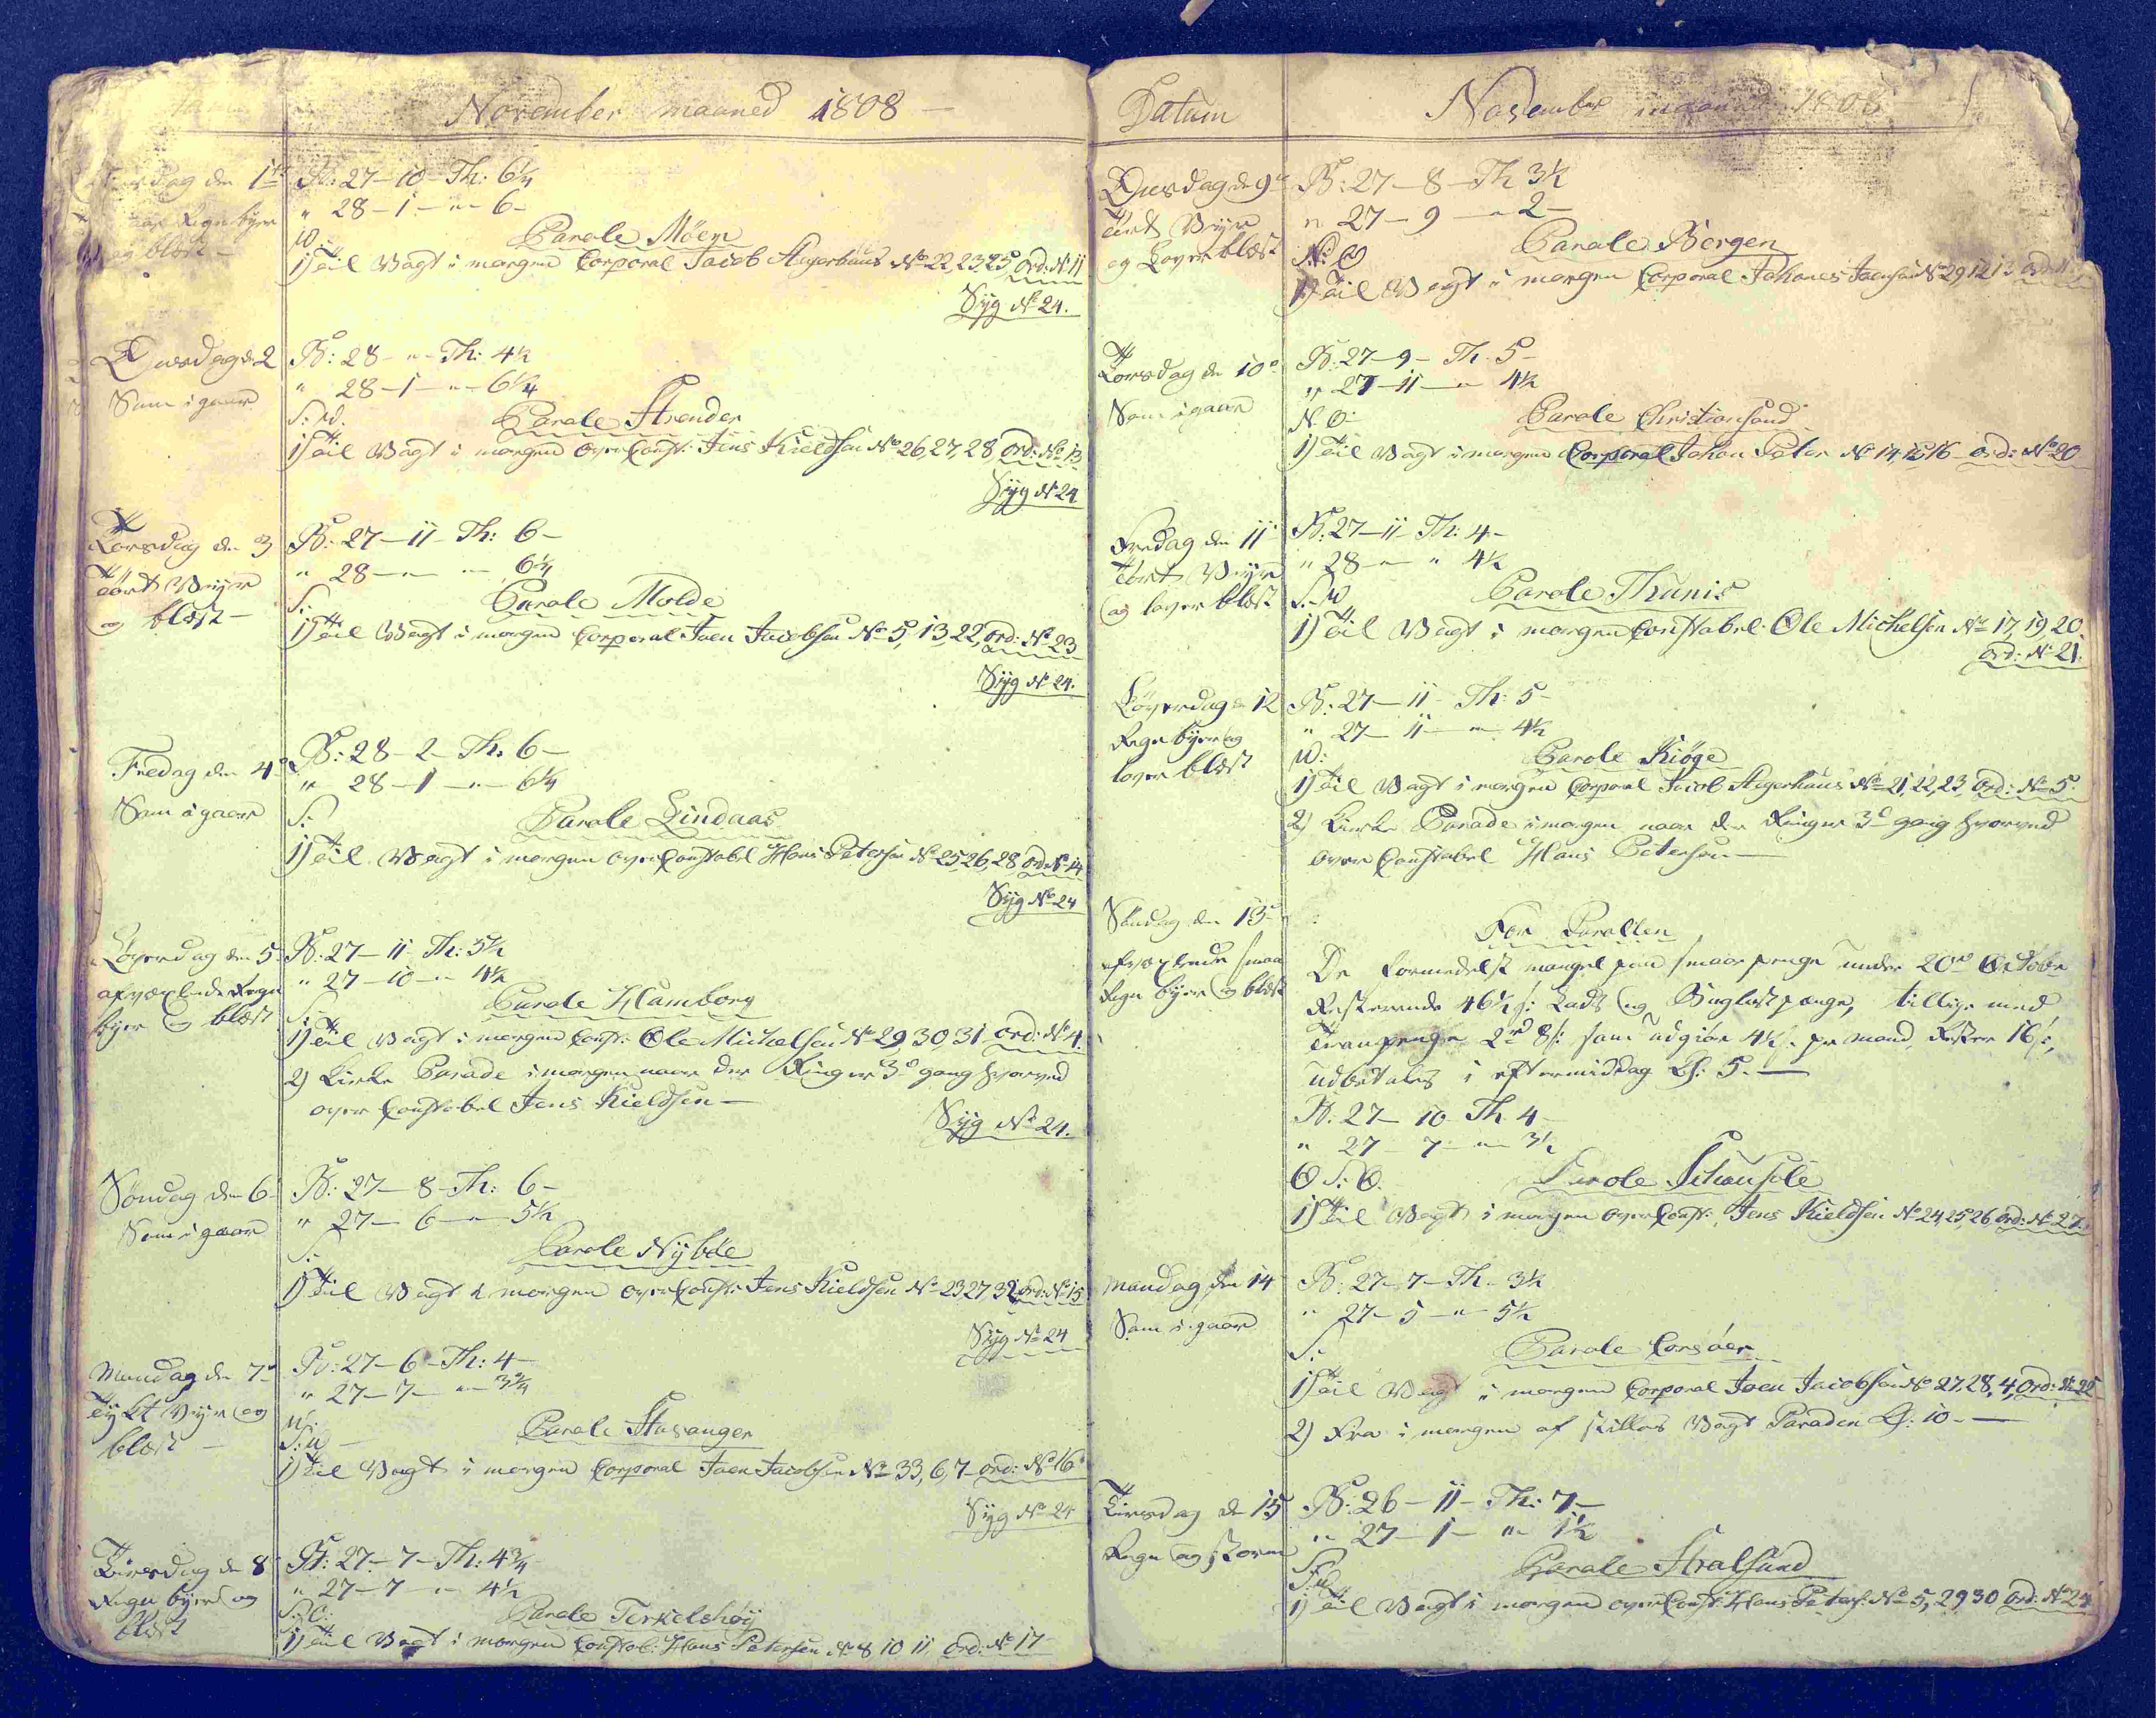 November maaned 1808 —
Tirsdag den 1te
Regn byer
og blæst —
B: 27–10 Th: 6¼
" 28–1 – " – 6 –
W
Parole Möen
1) Til Vagt i morgen Corporal Jacob Agerhuus No 22, 23, 25, Ord: No 11
Syg No 24.
Onsdag d. 2
Som i gaar
B: 28 – " – Th: 4½
" 28–1 – " – 6¼
S: W.
Parole Strander
1) Til Vagt i morgen Over Const: Jens Kieldsen No 26, 27, 28, Ord: No 13
Syg No 24
Torsdag den 3
Tört Veyr
og blæst —
B: 27–11 Th: 6 –
" 28 – " – " – 6¼
S:
Parole Molde
1) Til Vagt i morgen Corporal Joen Jacobsen No 5, 13, 22, Ord: No 23
Syg No 24.
Fredag den 4de
Som i gaar
B: 28–2 – Th: 6 –
" 28–1 – " – 6¼
S:
Parole Lindaas
1) Til Vagt i morgen Over Constabel Hans Petersen No 25, 26, 28 Ord: No 14
Syg No 24
Löverdag den 5
afvexlende Regn
byer og blæst
B: 27–11 – Th: 5½
" 27–10 – " 4½
S:
Parole Hamborg
1) Til Vagt i morgen Const: Ole Michelsen No 29, 30, 31 Ord: No 4
2) Kirke Parade i morgen naar der Ringer 3de gang hvorved
over Constabel Jens Kieldsen —
Syg No 24.
Söndag den 6
Som i gaar
B: 27–8 – Th: 6 –
" 27–6 – " – 5½
S:
Parole Nybóe
1) Til Vagt i morgen Over Const: Jens Kieldsen No 23 27 32 Ord: No 15
Syg No 24
Mandag den 7de
Tykt Veyr og
blæst —
B: 27–6 – Th: 4 –
" 27–7 – " – 3¾
S: W
Parole Stavanger
1) Til Vagt i morgen Corporal Joen Jacobsen No 33, 6, 7 – Ord: No 16
Syg No 24
Tirsdag den 8
Regn byer og
blæst
B: 27–7 – Th: 4¾
" 27–7 – " 4½
S: O:
Parole Terkelshöy
1) Til Vagt i morgen Constab: Hans Petersen No 8 10 11, Ord: No 17
Datum
November maaned 1808
Onsdag d. 9de
Tört Veyr
og Lover blæst
B: 27–8 – Th 3½
" 27–9 – " 2 –
N: O
Parole Bergen
1) Til Vagt i morgen Corporal Johanes Joensen No 29, 12, 13
Torsdag den 10de
Som i gaar
B: 27–9 – Th. 5 –
" 27–11 – " 4½
N. O.
Parole Christiansand
1) Til Vagt i morgen Corporal Johan Peter No 14, 15, 16 – Ord: No 20
Fredag den 11
Tört Veyr
og lover blæst
B: 27–11 Th: 4 –
" 28 – " " 4½
S. W
Parole Thunis
1) Til Vagt i morgen Constabel Ole Michelsen No 17, 19, 20.
Ord: No 21.
Löverdag d. 12
Regn byer og
lover blæst
B: 27–11 – Th: 5 –
" 27–11 – " – 4½
W:
Parole Kiöge
1) Til Vagt i morgen Corporal Jacob Agerhuus No 21, 22, 23, Ord: No 5
2) Kirke Parade i morgen naar der Ringer 3de gang hvorved
over Constabel Hans Petersen —
Söndag den 13de
afvexlende smaa
Regn byer og blæst
For Parollen
De formedelst mangel paa smaae penge under 20de October
Resterende 46½ s: Lads og Buglast penge, tillige med
Tranpenge 2rd 8s: som udgiör 4½ s. pr mand, Rester 16 s:,
udbetales i eftermiddag Kl: 5. —
B: 27–10 Th 4 –
" 27–7 – " 3½
O S: O.
1) Til Vagt i morgen Over Const: Jens Kieldsen No 24, 25, 26 Ord: No 27.
Mandag den 14
Som i gaar
B: 27–7 – Th: 3½
" 27–5 – " 5½
S:
Parole Corsöer
1) Til Vagt i morgen Corporal Joen Jacobsen No 27, 28, 4, Ord: No
2) Fra i morgen af stilles Vagt Paraden Kl: 10 —
Tirsdag den 15
Regn og storm
B: 26–11 – Th: 7 –
" 27–1 – " 1½
S: W
Parole Stralsund
1) Til Vagt i morgen over Const: Hans Peters: No 5, 29 30 Ord: No 24